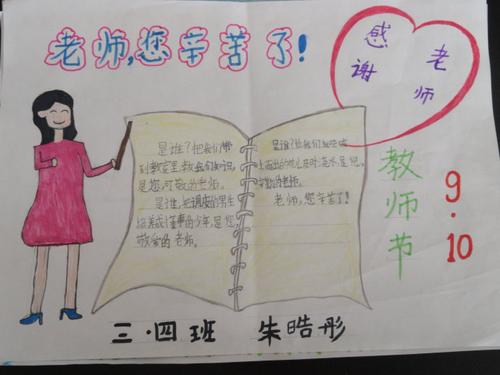 老师,您辛苦了!
感谢
老师
是谁?把我们带
到教室里,教我们知识,
是您,可敬的老师。
是谁,把调皮的男生
培养成懂事的少年,是您,
敬爱的老师。
是谁?把我们
老师,您辛苦了!
教师节
9.10
三·四班 朱晧彤